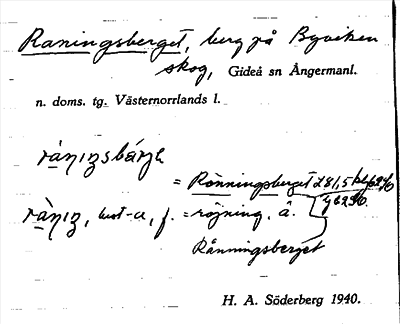 Raningsberget, berg på Byviken
skog, Gideå sn Ångermanl.
n. doms. tg. Västernorrlands l.
= Rönningsberget 281,5
rànıŋ, best -a, f. = röjning. å.
Rånningsberget
H. A. Söderberg 1940.